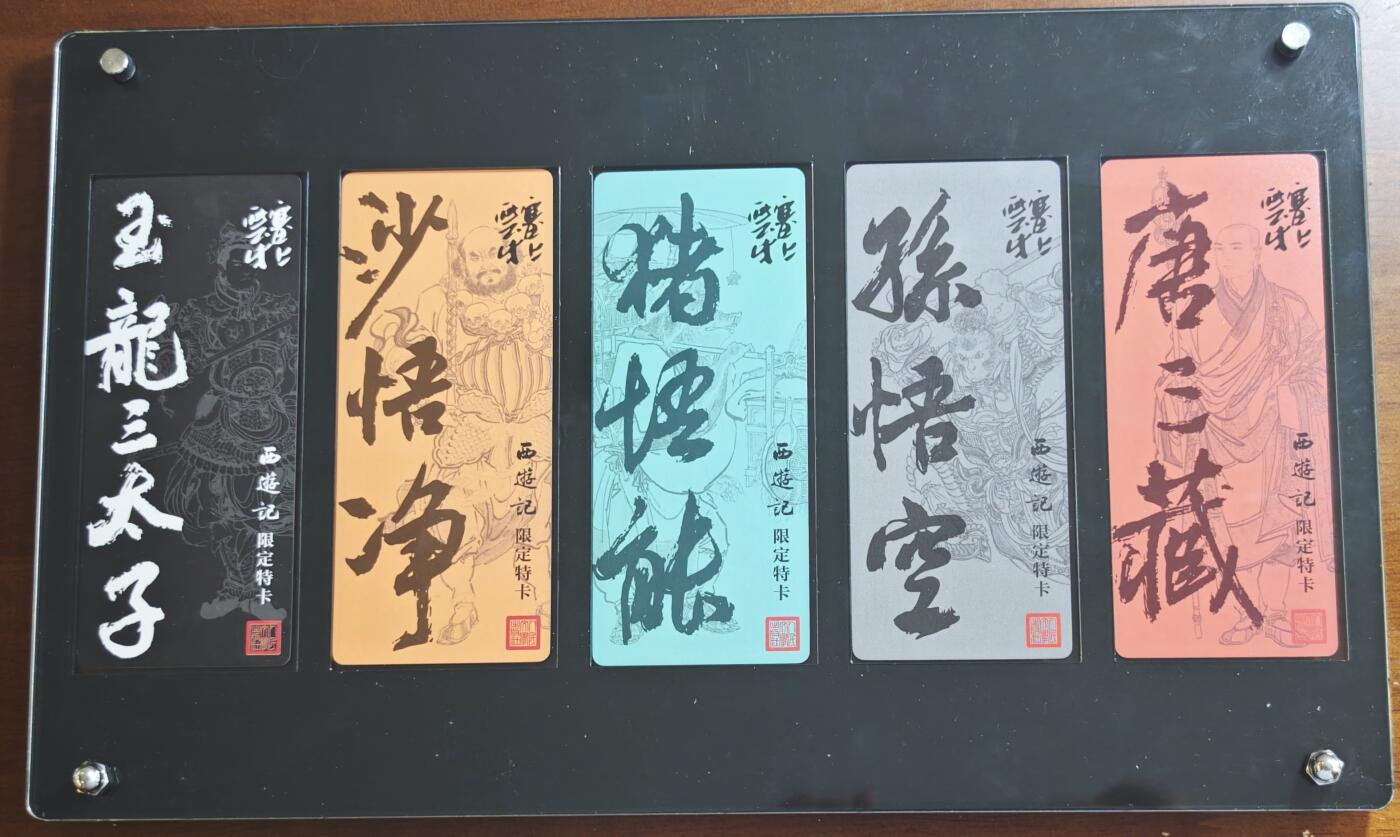 唐三藏
西遊記 限定特卡
孫悟空
西遊記 限定特卡
猪悟能
西遊記 限定特卡
沙悟净
西遊記 限定特卡
玉龍三太子
西遊記 限定特卡